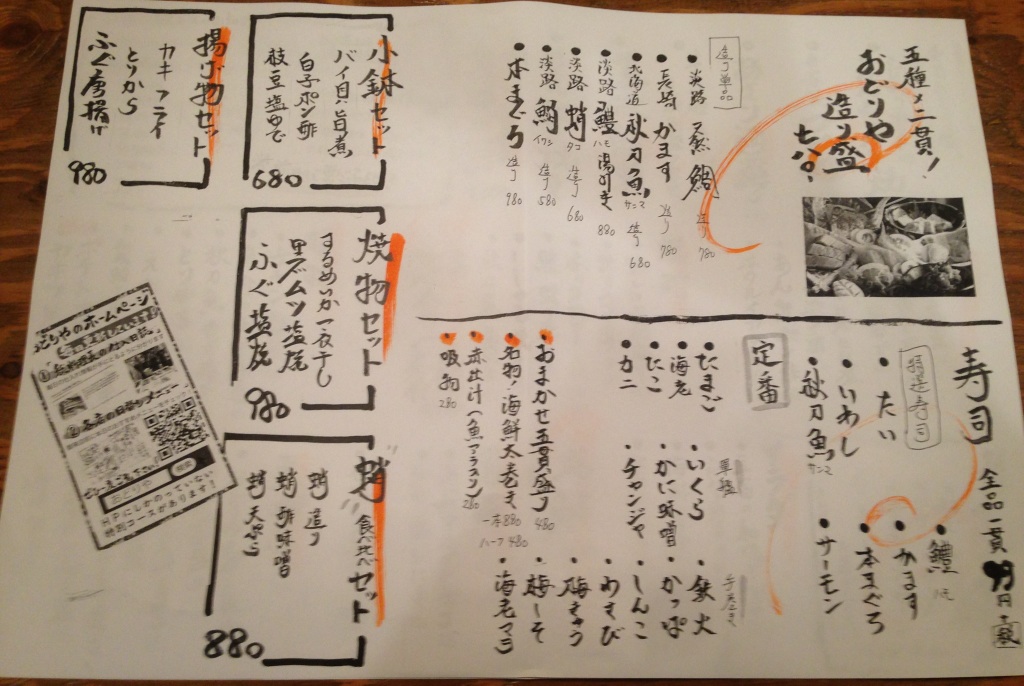 五種メ二貫!
おどりや
造り盛
造り単品
・淡路 天然 鯛 造り 780
・長崎 かます 造り 780
・北海道 秋刀魚 サンマ 造り 680
・淡路 鱧 ハモ 湯引き 880
・淡路 蛸 タコ 造り 680
・淡路 鰯 イワシ 造り 580
・本まぐろ 造り 980
寿司 全品一貫
特選寿司
・たい
・いわし
・秋刀魚 サンマ
・鱧 ハモ
・かます
・本まぐろ
・サーモン
定番
・たまご
・海老
・たこ
・カニ
軍艦
・いくら
・かに味噌
・チャンジャ
手巻き
・鉄火
・かっぱ
・しんこ
・わさび
・梅きゅう
・梅しそ
・海老マヨ
・おまかせ五貫盛り 480
・名物!海鮮太巻き 一本880 ハーフ480
・赤出汁(魚アラ入り) 280
・吸物 280
小鉢セット
バイ貝旨煮
白子ポン酢
枝豆塩ゆで
680
揚げ物セット
カキフライ
とりから
ふぐ唐揚げ
980
焼物セット
するめいか一夜干し
黒ムツ塩焼
ふぐ塩焼
980
蛸 食べ比べセット
蛸 造り
蛸 酢味噌
蛸 天ぷら
880
おどりやのホームページ
検索
おどりや
HPにしかのっていない
特別コースがあります!